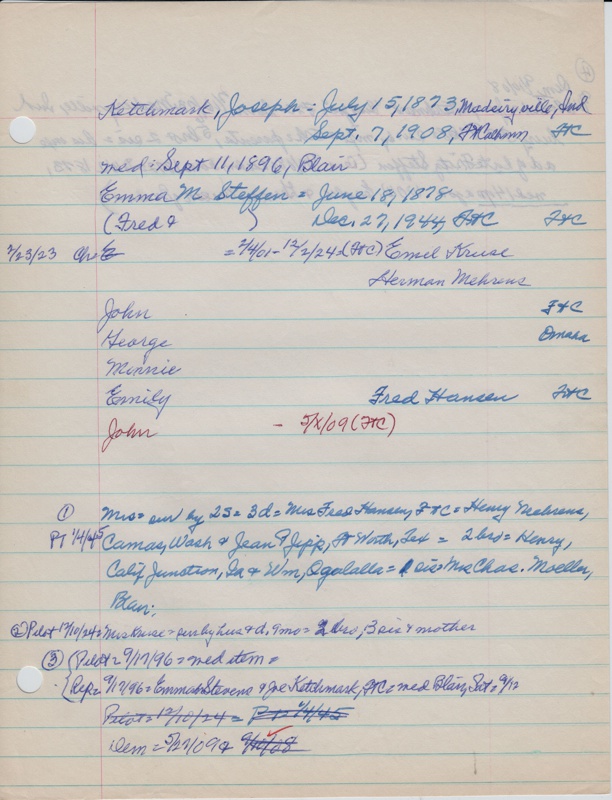 Ketchmark, Joseph = July 15, 1873, Madairyville, Ind
Sept. 7, 1908, Ft Calhoun FtC
med = Sept 11, 1896, Blair
Emma M Steffen = June 18, 1878
(Fred & ) Dec. 27, 1944, FtC FtC
2/23/23 E = 2/4/01 - 12/2/24 (FtC) Emil Kruse
Herman Mehrens
John FtC
George Omaha
Minnie
Emily Fred Hansen FtC
John - 5/x/09 (FtC)
① Mrs = sur by 2s = 3d = Mrs Fred Hansen, FtC = Henry Mehrens,
PT 1/4/45 Camas, Wash & Jean P Ft Worth, Tex = 2 bro = Henry,
Calif Junction, Ia & Wm, Ogalalla = 1 sis Mrs Chas. Moeller,
Blair.
② Pilot 12/10/24 = Mrs Kruse = sur by hus & d, 9 mo = 2 bro, 3 sis & mother
③ (Pilot = 9/17/96 = med item =
Rep = 9/17/96 = Emma Stevens & Joe Ketchmark, FtC = med Blair, Sat = 9/12
Pilot = 12/10/24 = PT 1/4/45
Dem = 5/27/09 &